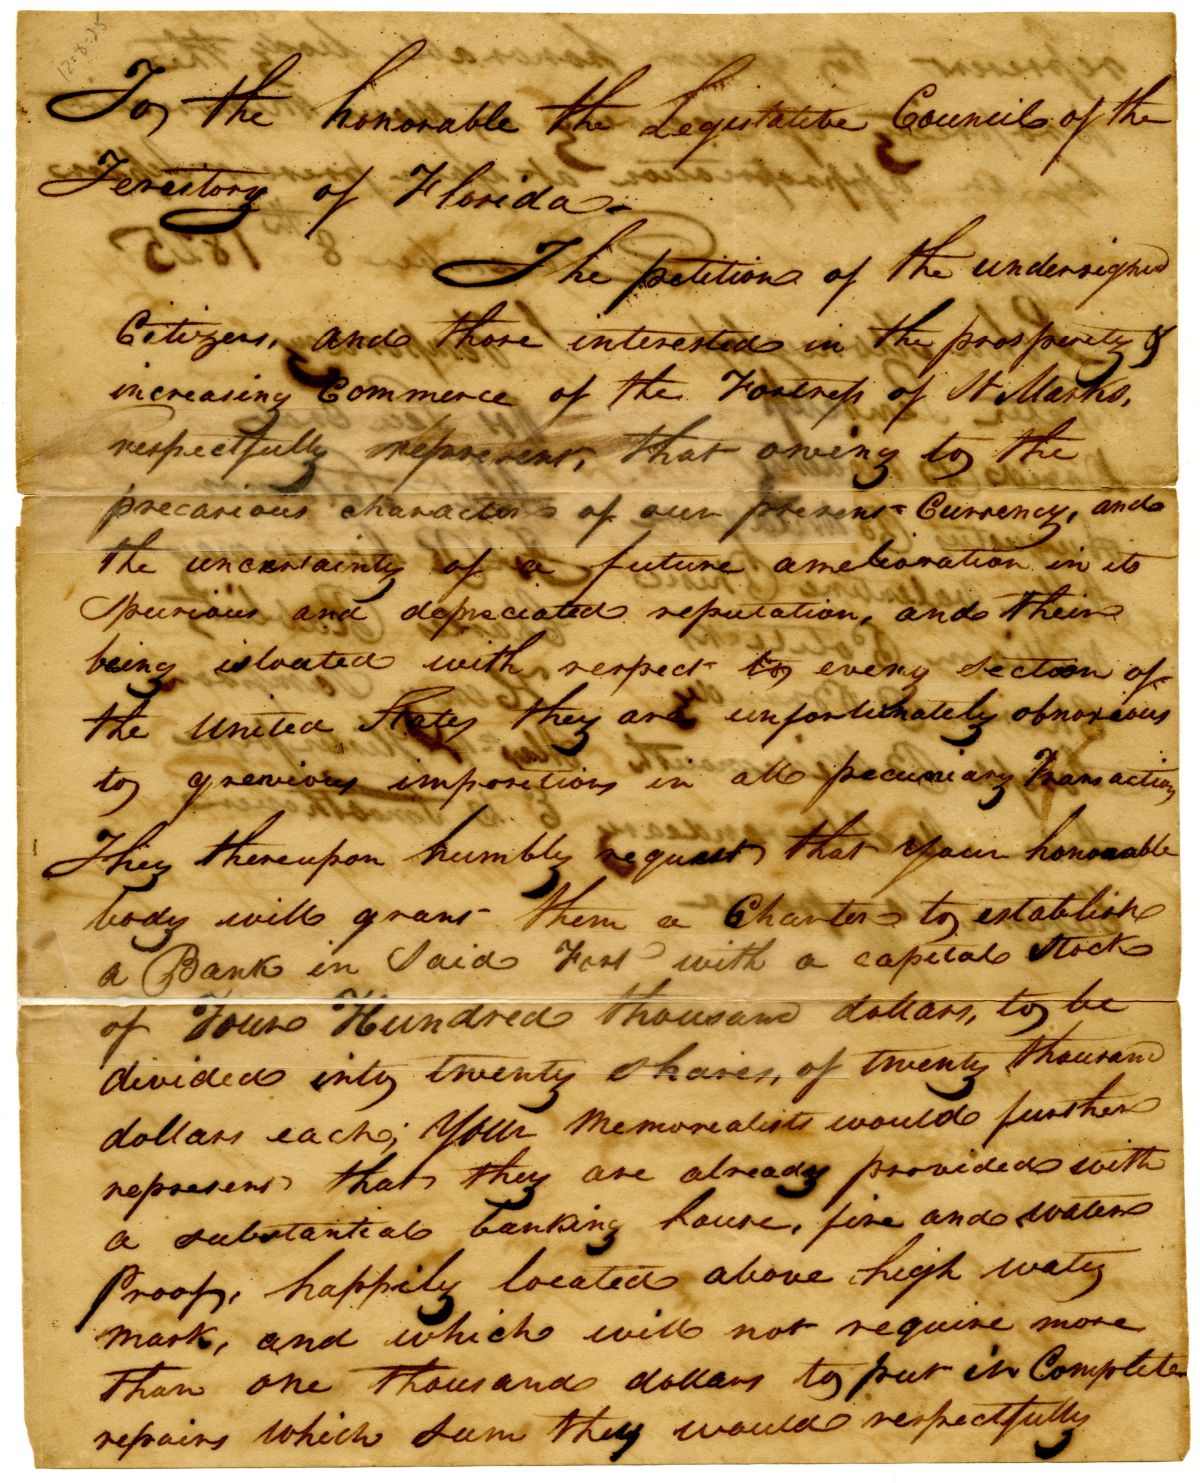 12-8-25
To the honorable the Legistative Council of the
Teretory of Florida.
The petition of the undersigned
Citizens, and those interested in the prosperity &
increasing Commerce of the Fortress of St Marks,
respectfully represent, that owing to the
precarious character of our present Currency, and
the uncertainty of a future amelioration in its
Spurious and depreciated reputation, and their
being isloated with respect to every section of
the United States they are unfortunately obnoxious
to grevious impositions in all pecuniary Transactions
They thereupon humbly request that your honorable
body will grant them a Charter to establish
a Bank in Said Fort with a capital Stock
of Four Hundred thousand dollars, to be
divided into twenty shares, of twenty thousand
dollars each; Your Memorealists would further
represent that they are already provided with
a substantial banking house, fire and water
Proof, happily located above high water
mark, and which will not require more
than one thousand dollars to put in Complete
repairs which sum they would respectfully